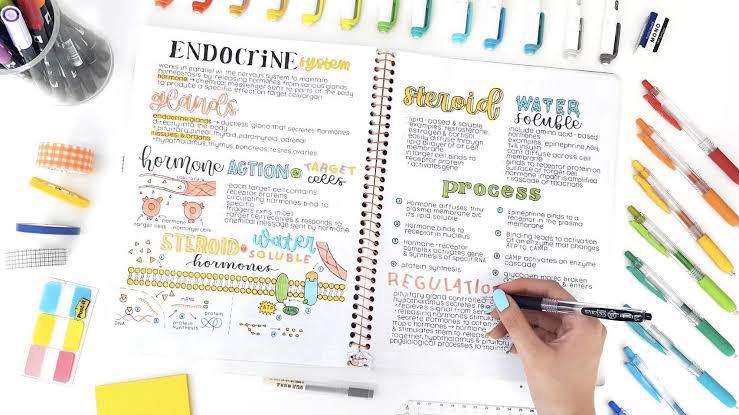 ENDOCRINE system
works in parallel w/ the nervous system to maintain
homeostasis by releasing hormones from various glands
hormone → chemical messenger sent to parts of the body
to produce a specific effect on target cell/organ
glands
endocrine glands → ductless gland that secretes hormones
directly into the body
pituitary, pineal, thyroid, parathyroid, adrenal
tissues & organs
hypothalamus, thymus, pancreas, testes, ovaries
hormone ACTION on TARGET
cells
each target cell contains
receptor proteins
circulating hormones bind to
specific
triggers rxns in cell
target cell receives & responds to
chemical message sent by hormone
target cells
hormone
STEROID water
SOLUBLE
hormones
ATP
DNA
mRNA
protein
synthesis
steroid
lipid-based & soluble
examples: testosterone,
estrogen & cortisol
easily diffuse through
lipid bilayer of cell
membrane
target cell binds to
receptor protein
activates gene
WATER
soluble
include amino acid-based
hormones
examples: epinephrine,
can't diffuse across cell
membrane
binds to receptor protein on
surface of target cell
hormone impact is amplified
cascade of reactions
process
1 Hormone diffuses thru
plasma membrane b/c
its lipid soluble
2 Hormone binds to
receptor in nucleus
3 Hormone-receptor
complex activates gene
& synthesis of specific RNA
protein synthesis
1 Epinephrine binds to a
receptor in the plasma
membrane
2 Binding leads to activation
of an enzyme that changes
ATP to cAMP
3 cAMP activates an enzyme
cascade
Glycogen molec broken
REGULATIO
pituitary gland controlled
hypothalamus secretes
recieves signal from
releasing hormones
secrete hormones
tropic hormones → hormone
& stimulates them to release
together, hypothalamus & pituitary
physiological processes to maintain
MONO
Post-it